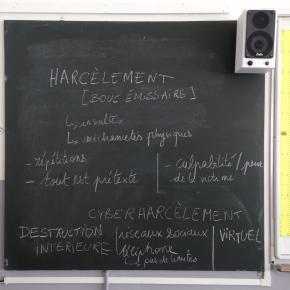 HARCÈLEMENT
[BOUC ÉMISSAIRE]
↳ insulte
↳ méchancetés physiques
- répétitions
- tout est prétexte
- culpabilité / peur
de la victime
CYBERHARCÈLEMENT
DESTRUCTION
INTERIEURE
réseaux sociaux
téléphone
↳ pas de limites
VIRTUEL